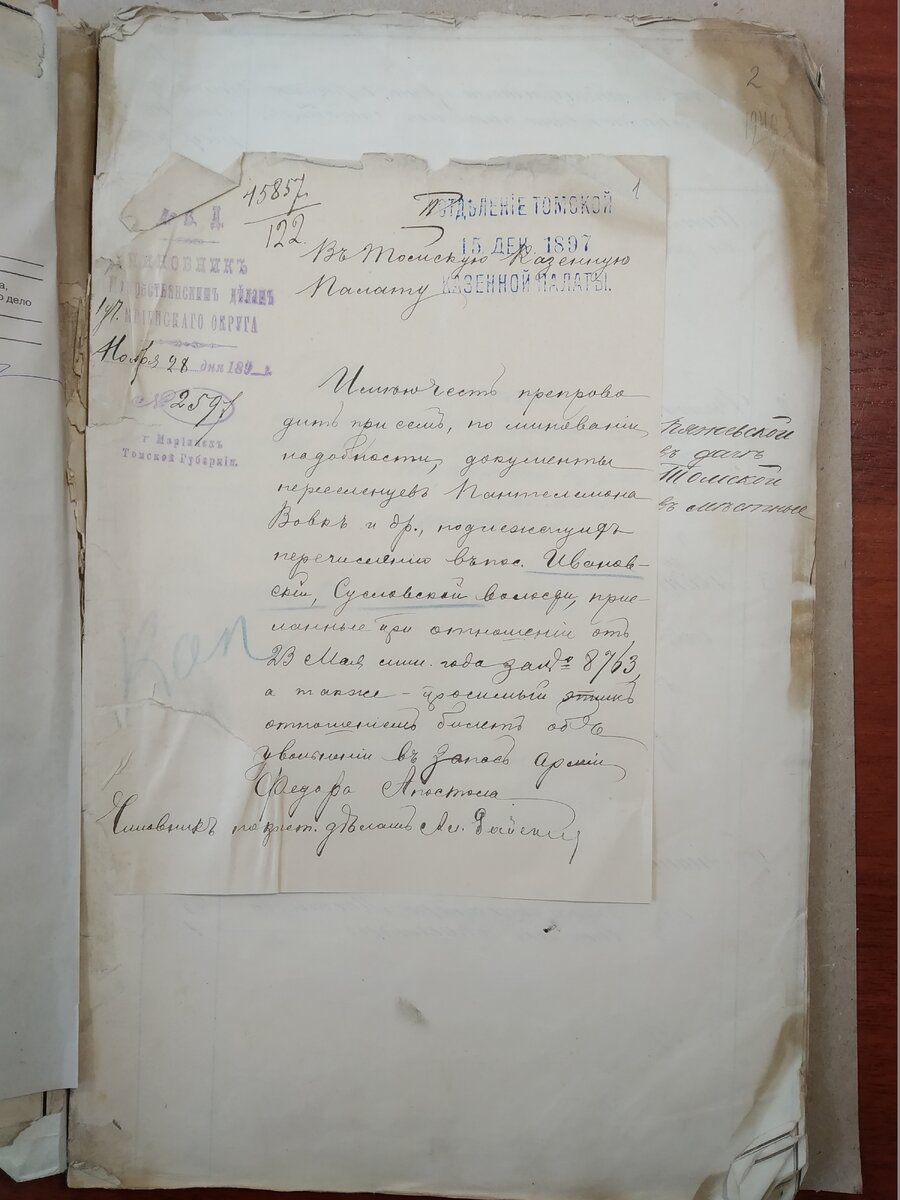 2
1
15857
122
ОТДѢЛЕНІЕ ТОМСКОЙ
15 ДЕК. 1897
КАЗЕННОЙ ПАЛАТЫ.
М В Д
ЧИНОВНИКЪ
КРЕСТЬЯНСКИМЪ ДѢЛАМЪ
МАРІИНСКАГО ОКРУГА
Ноября 28 дня 189 г.
№ 2597
г. Маріинскъ
Томской Губерніи.
Въ Томскую Казенную
Палату
Имѣю честь препрово
дить при семъ, по минованіи
надобности, документы
переселенцевъ Пантелеимона
Вовкъ и др., подлежащихъ
перечисленію въ пос. Иванов-
скій, Сусловской волости, прис-
ланные при отношеніи отъ
23 Мая сего года за № 8763,
а также - просимый этимъ
отношеніемъ билетъ объ
увольненіи въ запасъ арміи
Федора Апостола
Чиновникъ по крест. дѣламъ Ал.
въ дачѣ
Томской
въ
а,
о дело